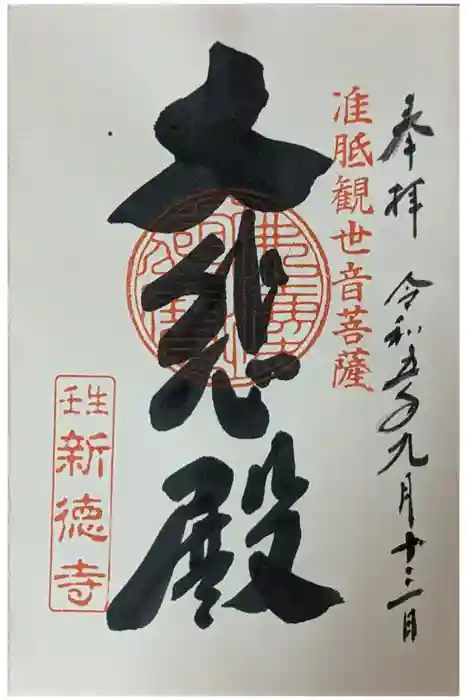 奉拝　令和五年九月十三日
准胝観世音菩薩
大悲殿
壬生
新徳寺